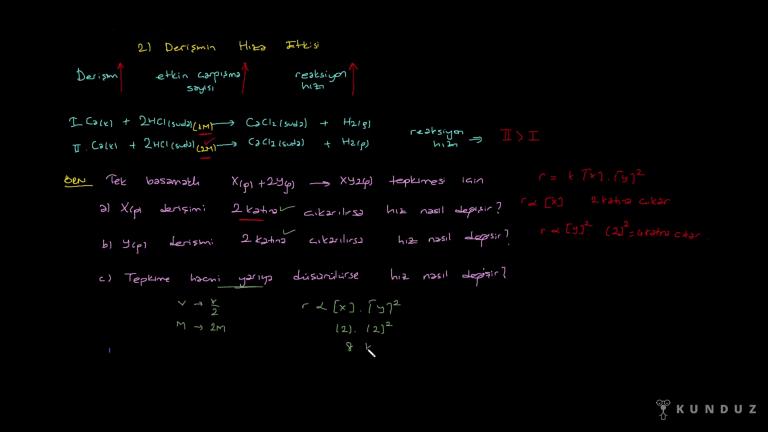 2) Derişimin Hıza Etkisi
Derişim etkin çarpışma sayısı reaksiyon hızı
I. Ca(k) + 2HCl(suda)(1M) → CaCl2(suda) + H2(g)
II. Ca(k) + 2HCl(suda)(2M) → CaCl2(suda) + H2(g)
reaksiyon hızı ⇒ II > I
ÖRN Tek basamaklı X(g) + 2Y(g) → XY2(g) tepkimesi için
a) X(g) derişimi 2 katına çıkarılırsa hız nasıl değişir?
b) Y(g) derişimi 2 katına çıkarılırsa hız nasıl değişir?
c) Tepkime hacmi yarıya düşürülürse hız nasıl değişir?
r = k [X] . [Y]²
r α [X] 2 katına çıkar
r α [Y]² (2)² = 4 katına çıkar.
V → V/2
M → 2M
r α [X] . [Y]²
(2) . (2)²
8 k
KUNDUZ